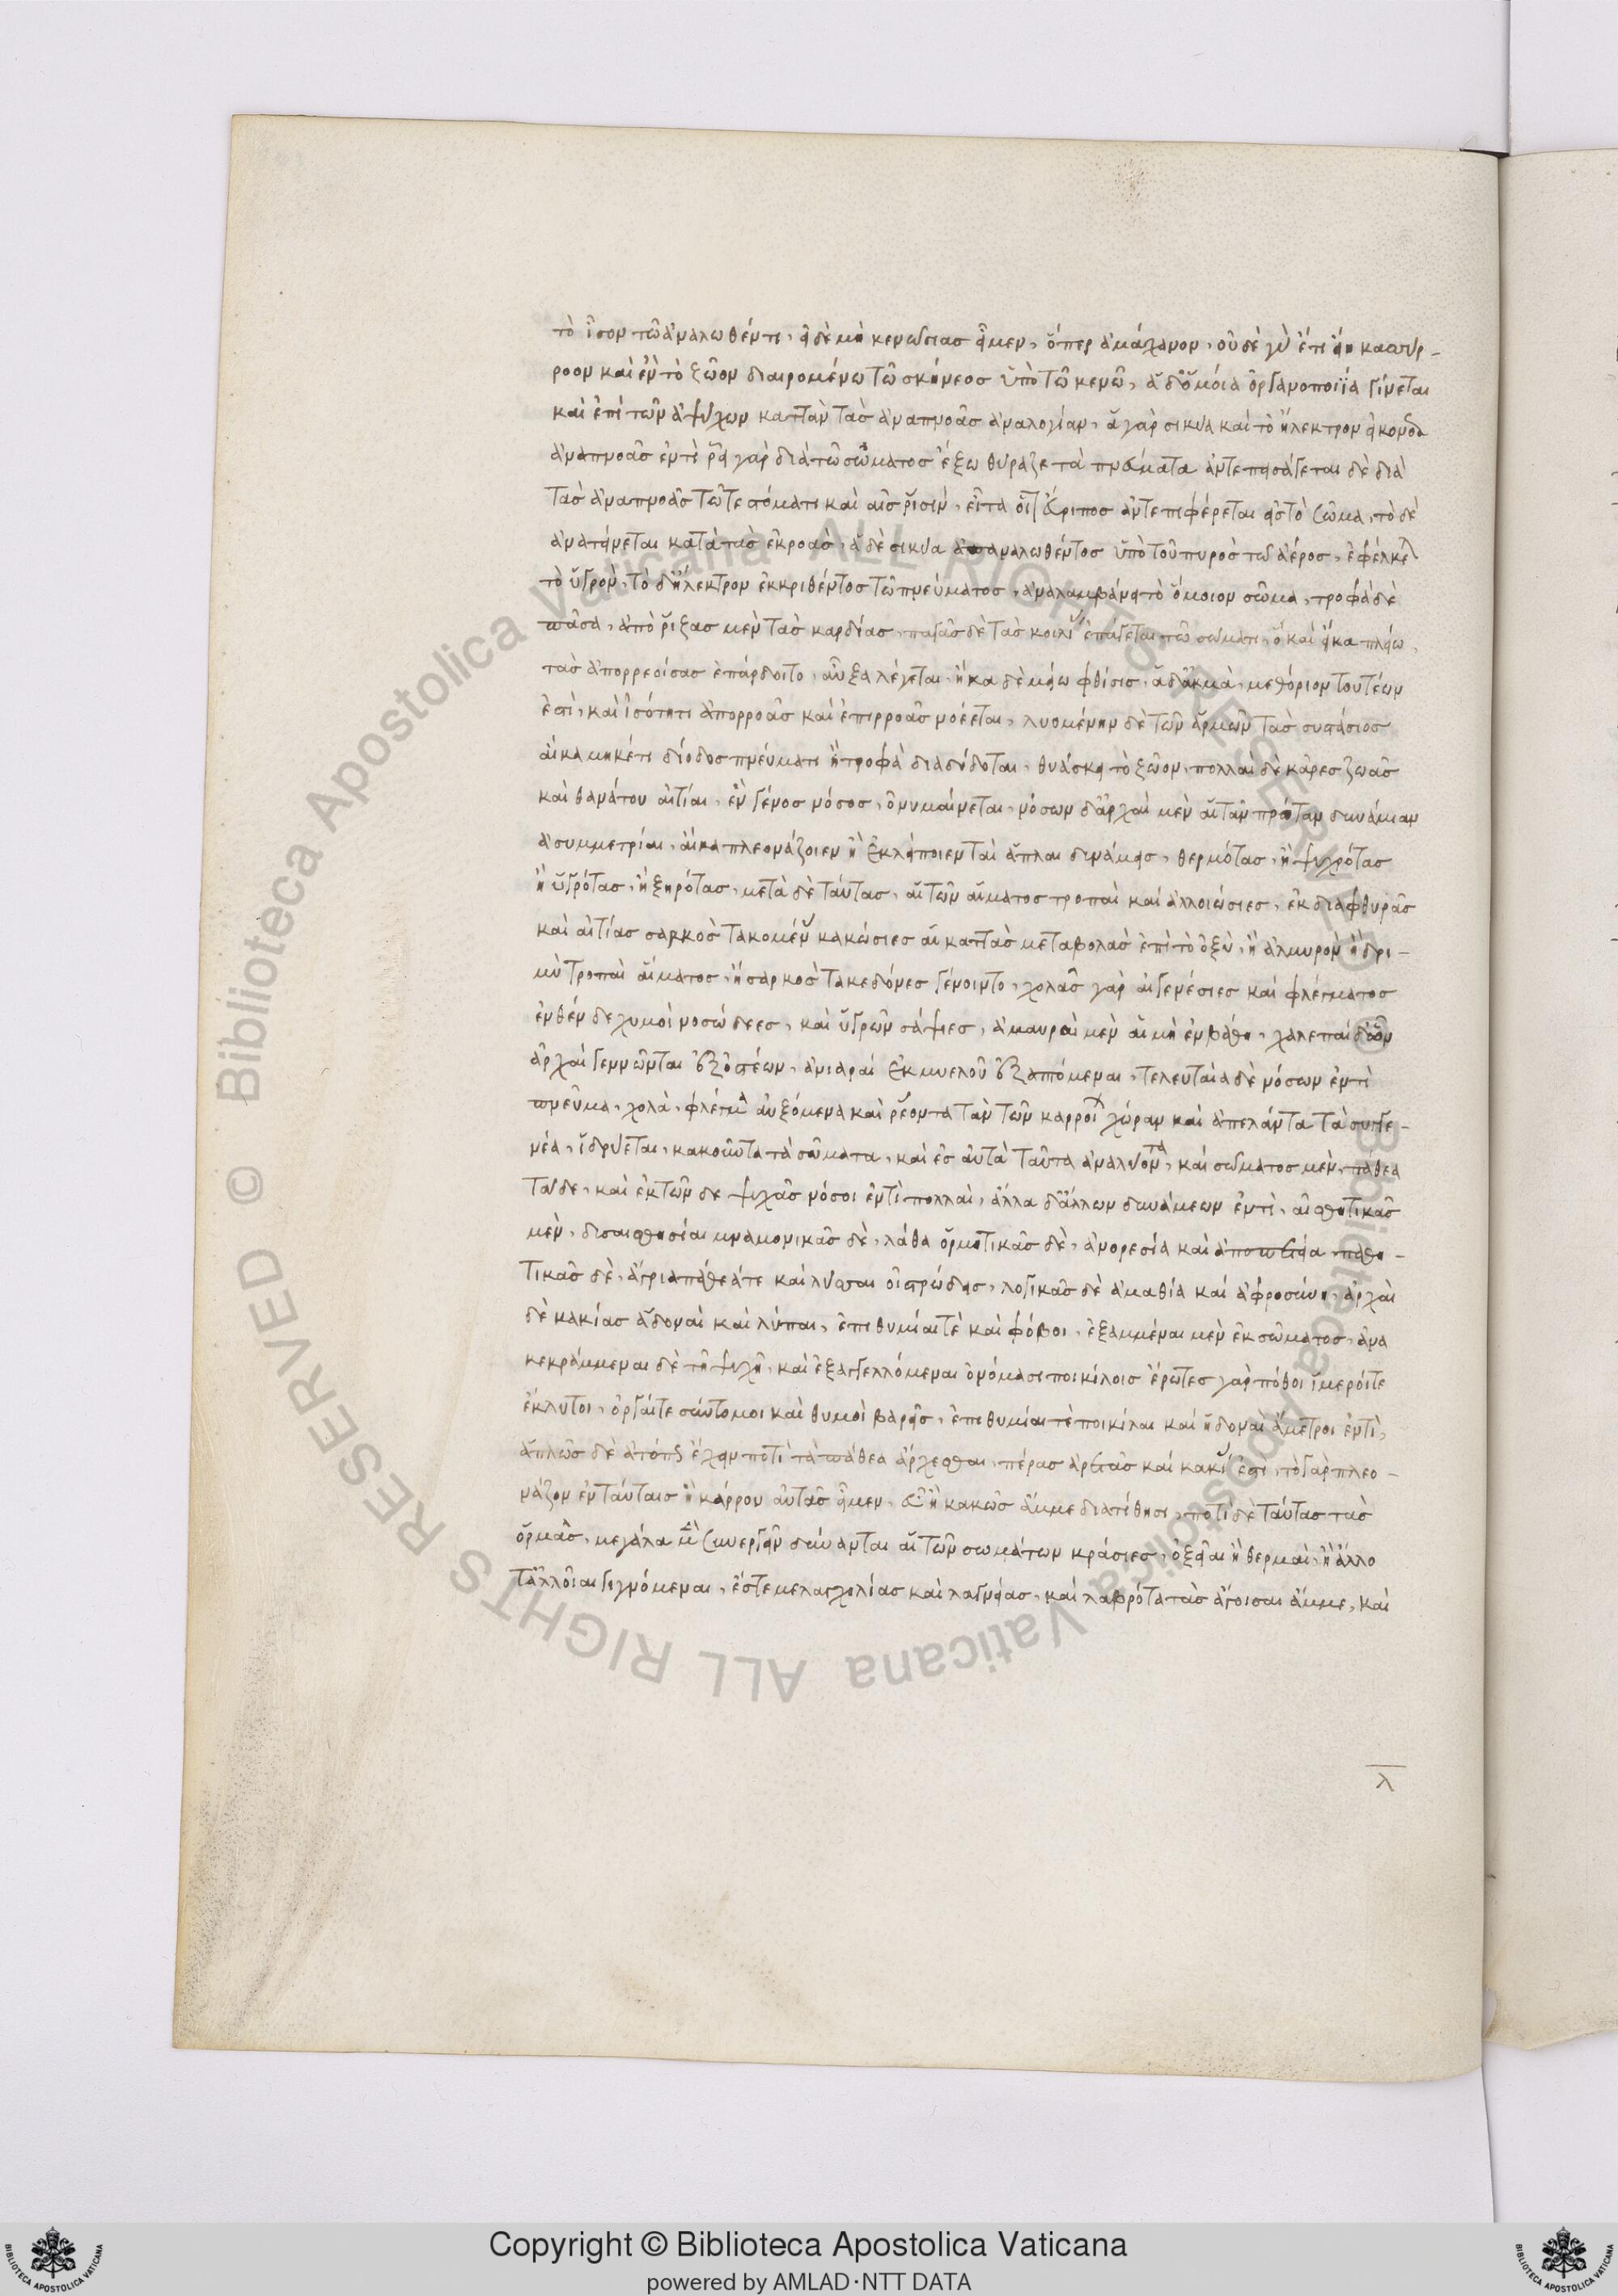 τὸ ἶσον τῶ ἀναλωθέντι, εἰ δὲ μὴ κενώσιας εἶμεν, ὅπερ ἀμάχανον, οὐδὲ γὰρ ἔτι εἴη κασύρ-
ροον καὶ ἓν τὸ ζῶον διαιρομένω τῶ σκήνεος ὑπὸ τῶ κενῶ, ἁ δ' ὁμοία ὀργανοποιΐα γίνεται
καὶ ἐπὶ τῶν ἀψύχων καττὰν τᾶς ἀναπνοᾶς ἀναλογίαν, ἁ γὰρ σικύα καὶ τὸ ἤλεκτρον εἰκόνες
ἀναπνοᾶς ἐντί ῥεῖ γὰρ διὰ τῶ σώματος ἔξω θύραζε τὰ πνεύματα ἀντεπεισάγεται δὲ διὰ
τᾶς ἀναπνοᾶς τῶ τε στόματι καὶ αἷς ῥισίν, εἶτα οἷον Εὔριπος ἀντεπιφέρεται εἰς τὸ σῶμα, τὸ δὲ
ἀνατείνεται κατὰ τὰς ἐκροάς, ἁ δὲ σικύα ἀπαναλωθέντος ὑπὸ τοῦ πυρὸς τῶ ἀέρος, ἐφέλκει
τὸ ὑγρόν, τὸ δ' ἤλεκτρον ἐκκριθέντος τῶ πνεύματος, ἀναλαμβάνει τὸ ὅμοιον σῶμα, τροφὰ δὲ
πᾶσα, ἀπὸ ῥίζας μὲν τᾶς καρδίας, παγᾶς δὲ τᾶς κοιλίας ἐπάγεται τῶ σώματι, ὃ καὶ εἴκα πλείω
τᾶς ἀπορρεοίσας ἐπάρδοιτο, αὔξα λέγεται, ἤκα δὲ μείω φθίσις, ἁ δ' ἀκμὰ, μεθόριον τουτέων
ἐστὶ, καὶ ἰσότητι ἀπορροᾶς καὶ ἐπιρροᾶς νοέεται, λυομένην δὲ τῶν ἁρμῶν τᾶς συστάσιος
αἴκα μηκέτι δίοδος πνεύματι ἢ τροφὰ διαδίδοται, θνάσκει τὸ ζῶον, πολλαὶ δὲ κᾶρες ζωᾶς
καὶ θανάτου αἰτίαι, ἓν γένος νόσος, ὀνυμαίνεται, νόσων δ' ἀρχαὶ μὲν αἱ τᾶν πρώταν δυναμίων
ἀσυμμετρίαι, αἴκα πλεονάζοιεν ἢ ἐκλείποιεν ταὶ ἁπλαῖ δυνάμεις, θερμότας, ἢ ψυχρότας
ἢ ὑγρότας, ἢ ξηρότας, μετὰ δὲ ταύτας, αἱ τῶν αἵματος τροπαὶ καὶ ἀλλοιώσιες, ἐκ διαφθορᾶς
καὶ αἰτίας σαρκὸς τακομένας κακώσιες αἱ καττὰς μεταβολὰς ἐπὶ τὸ ὀξὺ, ἢ ἁλμυρὸν ἢ δρι-
μὺ τροπαὶ αἵματος, ἢ σαρκὸς τακεδόνες γένοιντο, χολᾶς γὰρ αἱ γενέσιες καὶ φλέγματος
ἐνθέν δε χυμοὶ νοσώδεες, καὶ ὑγρῶν σάψιες, ἀμαυραὶ μὲν αἱ μὴ ἐν βάθει, χαλεπαὶ δ' ὧν
ἀρχαὶ γεννῶνται ἐξ ὀστέων, ἀνιαραὶ ἐκ μυελοῦ ἐξαπόμεναι, τελευταῖα δὲ νόσων ἐντὶ
πνεῦμα, χολὰ, φλέγμα αὐξόμενα καὶ ῥέοντα τὰν τῶν καρροι χώραν καὶ ἀπελάντα τὰ συγγε-
νέα, ἱδρύεται, κακοῦντα τὰ σώματα, καὶ ἐς αὐτὰ ταῦτα ἀναλύοντα, καὶ σώματος μὲν, πάθεα
τάδε, καὶ ἐκ τῶν δε ψυχᾶς νόσοι ἐντὶ πολλαὶ, ἄλλα δ' ἄλλων δυνάμεων ἐντὶ, αἰσθητικᾶς
μὲν, δυσαισθησίαι μναμονικᾶς δὲ, λάθα ὁρμητικᾶς δὲ, ἀνορεσία καὶ ἀπσωστεία, παθη-
τικᾶς δὲ, ἄγρια πάθεά τε καὶ λύσσαι οἰστρώδεις, λογικᾶς δὲ ἀμαθία καὶ ἀφροσύνη, ἀρχαὶ
δὲ κακίας ἁδοναὶ καὶ λύπαι, ἐπιθυμίαι τὲ καὶ φόβοι, ἐξαμμέναι μὲν ἐκ σώματος, ἀνα
κεκράμμεναι δὲ τῆ ψυχῆ, καὶ ἐξαγγελλόμεναι ὀνόμασι ποικίλοις ἔρωτες γὰρ πόθοι ἵμεροί τε
ἔκλυτοι, ὀργαί τε σύντομοι καὶ θυμοὶ βαρεῖς, ἐπιθυμίαι τὲ ποικίλαι καὶ ἡδοναὶ ἄμετροι ἐντὶ,
ἁπλῶς δὲ ἀτόπως ἔχειν ποτὶ τὰ πάθεα ἄρχεσθαι, πέρας ἀρετᾶς καὶ κακίας ἐστι, τὸ γὰρ πλεο-
νάζον ἐν ταύταις ἢ κάρρον αὐτᾶς εἶμεν, εὖ ἢ κακῶς ἄμμε διατίθησι, ποτὶ δὲ ταύτας τὰς
ὁρμὰς, μεγάλα μὲν συνεργεῖν δύνανται αἱ τῶν σωμάτων κράσιες, ὀξεῖαι ἢ θερμαὶ, ἢ ἄλλο
τ' ἀλλοῖαι γιγνόμεναι, ἔς τε μελαγχολίας καὶ λαγνείας, καὶ λαβρότατας ἄγοισαι ἄμμε, καὶ
λ
Copyright © Biblioteca Apostolica Vaticana
powered by AMLAD·NTT DATA